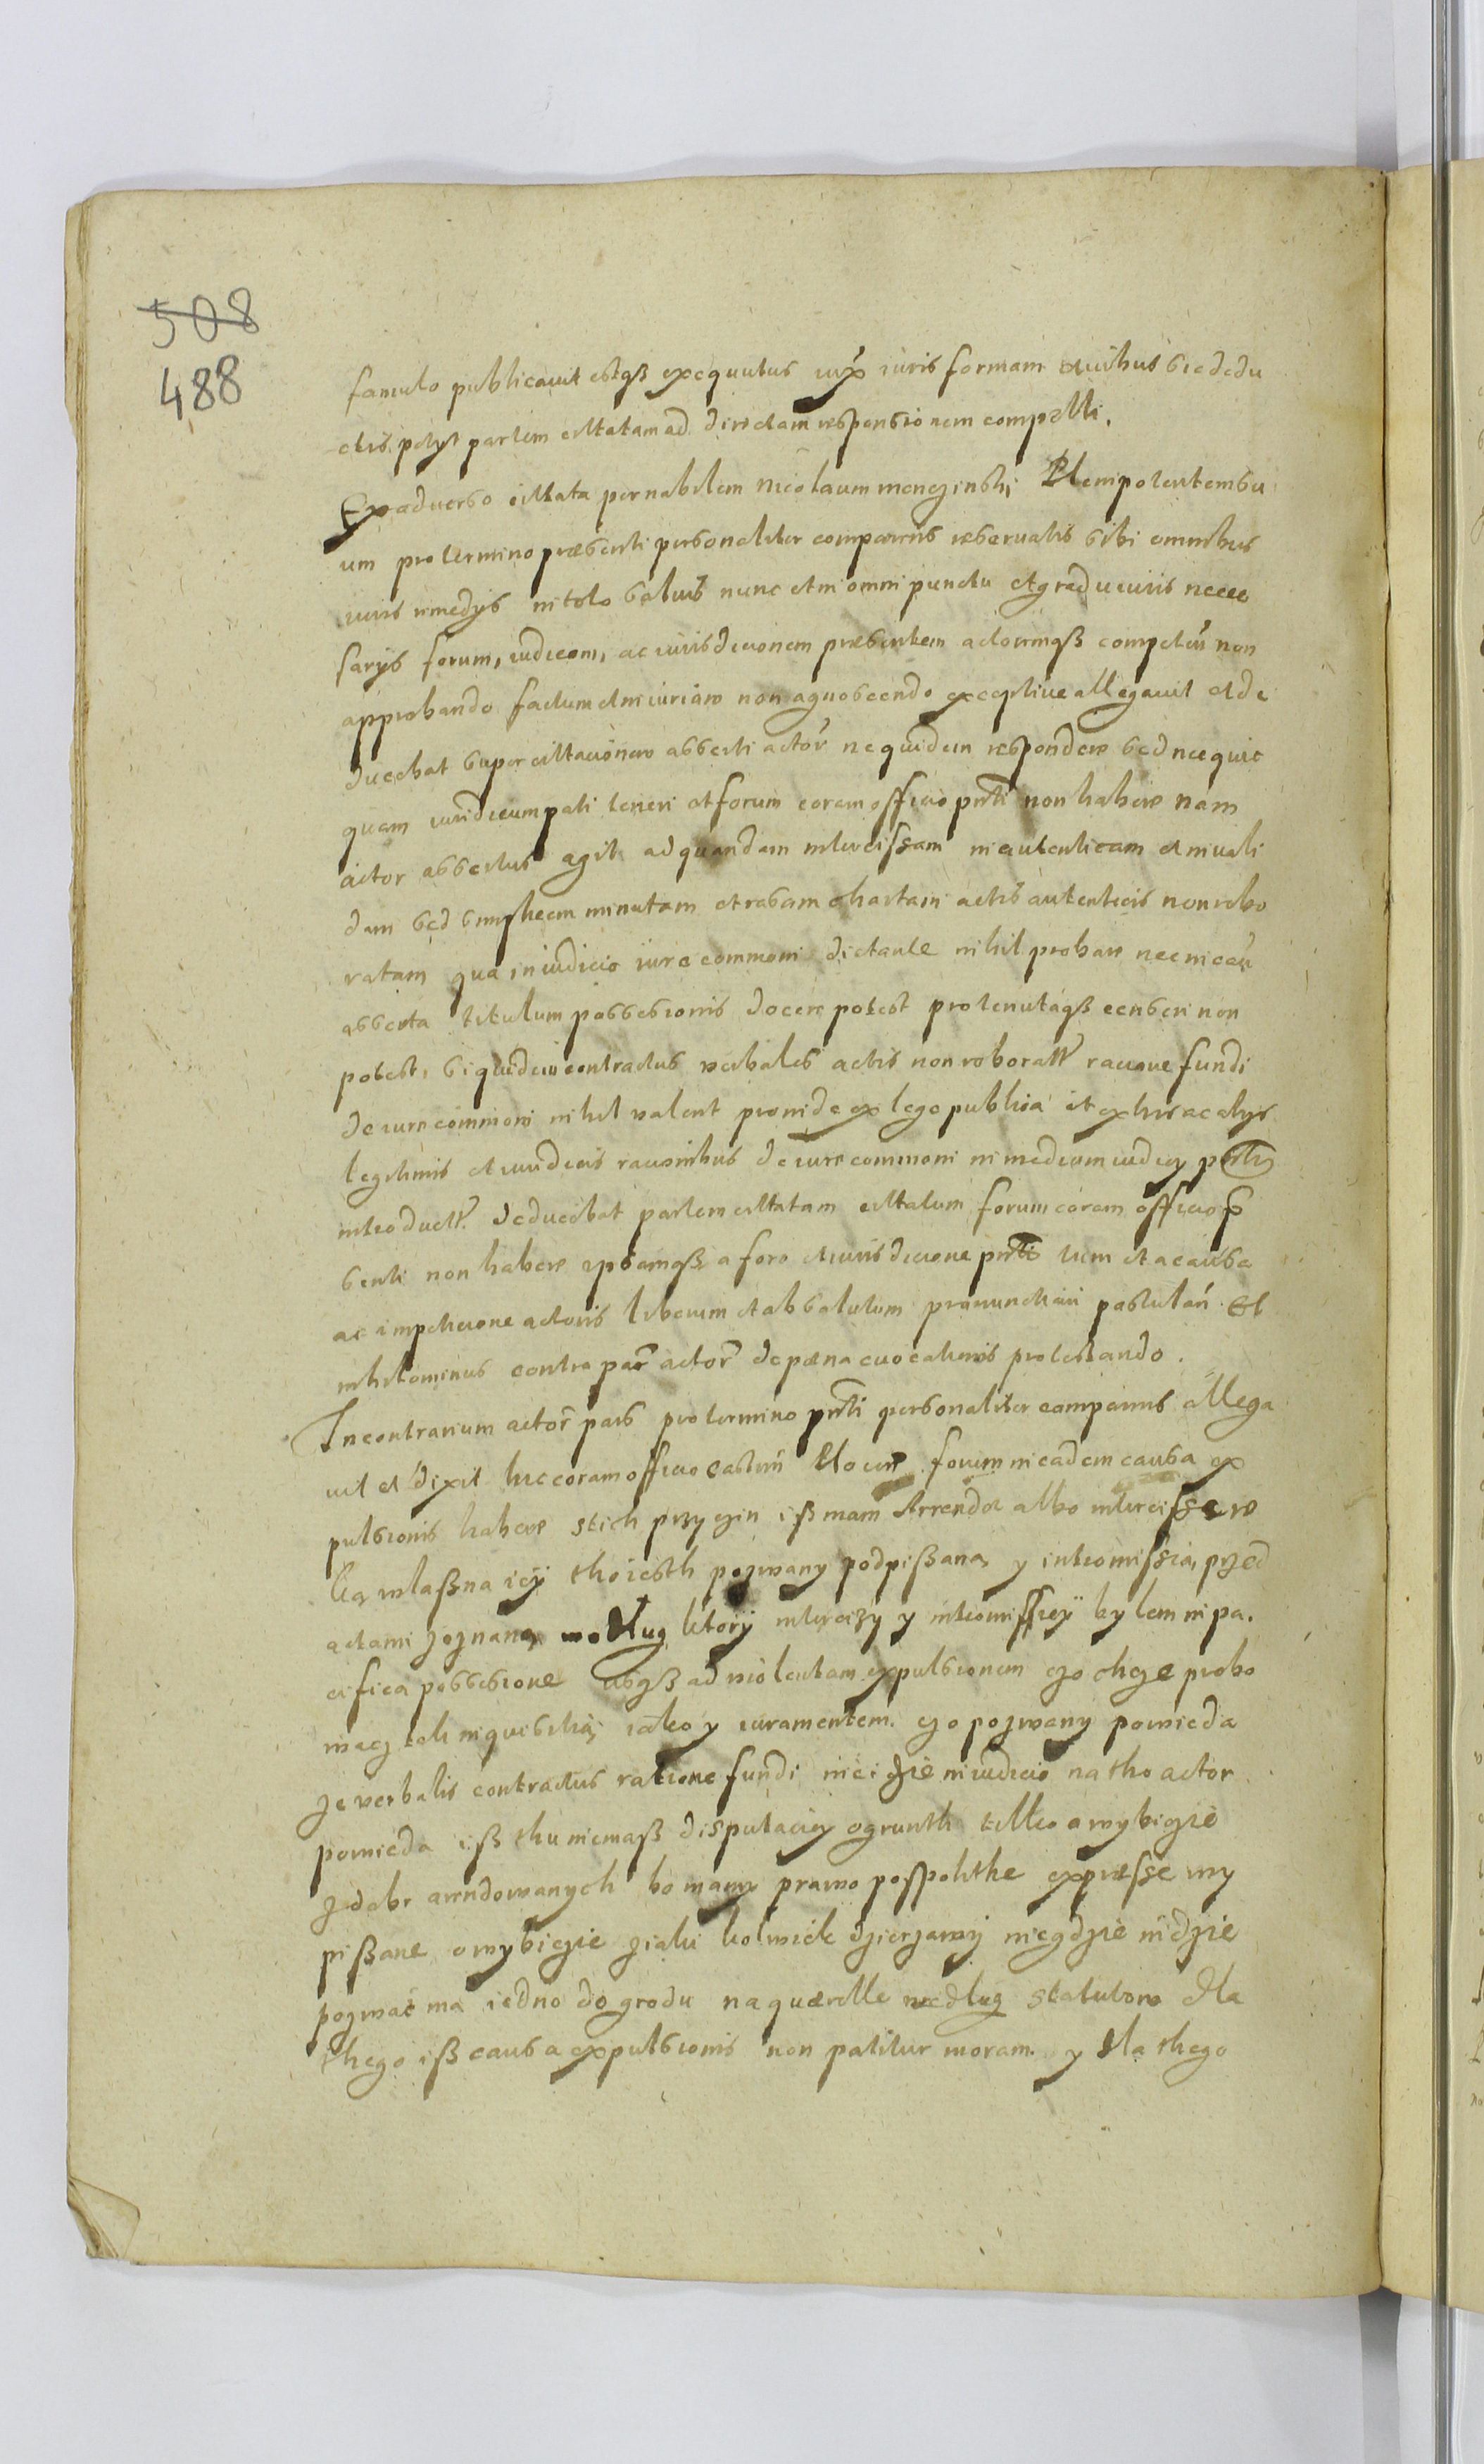 508
488
famulo publicauit estqß exequutus iux iuris formam quibus sic dedu
ctis petyt partem cittatam ad directam responsionem compelli.
Ex aduerso cittata per nobilem Nicolaum Plenipotentem su
um pro termino præsenti personaliter comparens reseruatis sibi omnibus
iuris remedys in toto saluis nunc et in omni punctu et gradu iuris neces
sarys forum, iudicem, ac iurisdicionem præsentem actoremqß competeñ non
approbando factum et iniuriam non agnoscendo exceptiue allegauit et de
ducebat super cittacionem asserti actor̃ ne quidem respondere sed nec quic
quam iuridicum pati teneri et forum coram officio pñti non habere nam
actor assertus agit ad quandam intercissam inautenticam et inuali
dam sed simplicem minutam et rasam chartam actis autenticis non robo
ratam qua in iudicio iure commoni dictante nihil probare nec
asserta titulum possesionis docere potest pro tenutaqß censeri non
potest, siquidem contractus verbales actis non roborati racione fundi
de iure commoni nihil valent proinde ex lege publica et ex his ac alys
legitimis et iuridicis racionibus de iure commoni in medium iudicy
introduct. deducebat partem cittatam cittatum forum coram officio p
senti non habere ipsamqß a foro et iurisdicione pñti tum et a causa
ac impeticione actoris liberum et absolutum pronunctiari postulañ. Et
nihilominus contra par̃ actor̃ de pæna euocationis protestando.
In contrarium actor̃ pars pro termino pñti personaliter comparens allega
uit et dixit hic coram officio castreñ forum in eadem causa ex
pulsionis habere stich przyczin iß mam Arrendę albo intercissę re
ką własną iey tho iesth pozwany podpißaną y intromissią przed
actami zoznaną wedlug ktory intercizy y intromissiey bylem in pa.
cifica possesione usqß ad violentam expulsionem czo chcze probo
wacz tak inquisitią iako y iuramentem. czo pozwany powieda
ze verbalis contractus ratione fundi in iudicio na tho actor
powieda iß thu niemaß disputaciey o grunth tilko o wybicie
z dobr arendowanych bo mamy prawo pospolithe expresse wy
pißane o wybicie z iaki kolwiek dzierzawy niegdzie indzie
pozwać ma iedno do grodu na quærelle wedlug statutow dla
thego iß causa expulsionis non patitur moram y dla thego